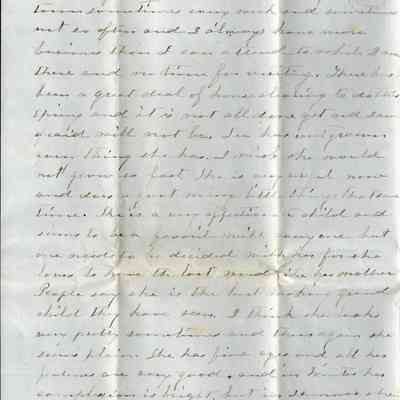 town sometimes every week and sometimes
not so often and I always have more
business than I can attend to while I am
there and no time for visiting. There has
been a great deal of house cleaning to do this
spring and it is not all done yet and I am
afraid will not be. has out grown
every thing she has. I wish she would
not grow so fast. She is now
and does a great many little things
time. She is a very affectionate child and
seems to be a favorite with everyone but
one needs to be decided with her for she
loves to have the last word like her mother
People say she is the best looking grand
child they have seen. I think she looks
very pretty sometimes and then again she
seems plain. She has fine eyes and all her
features are very good, and in Winter her
complexion is bright, but in Summer she